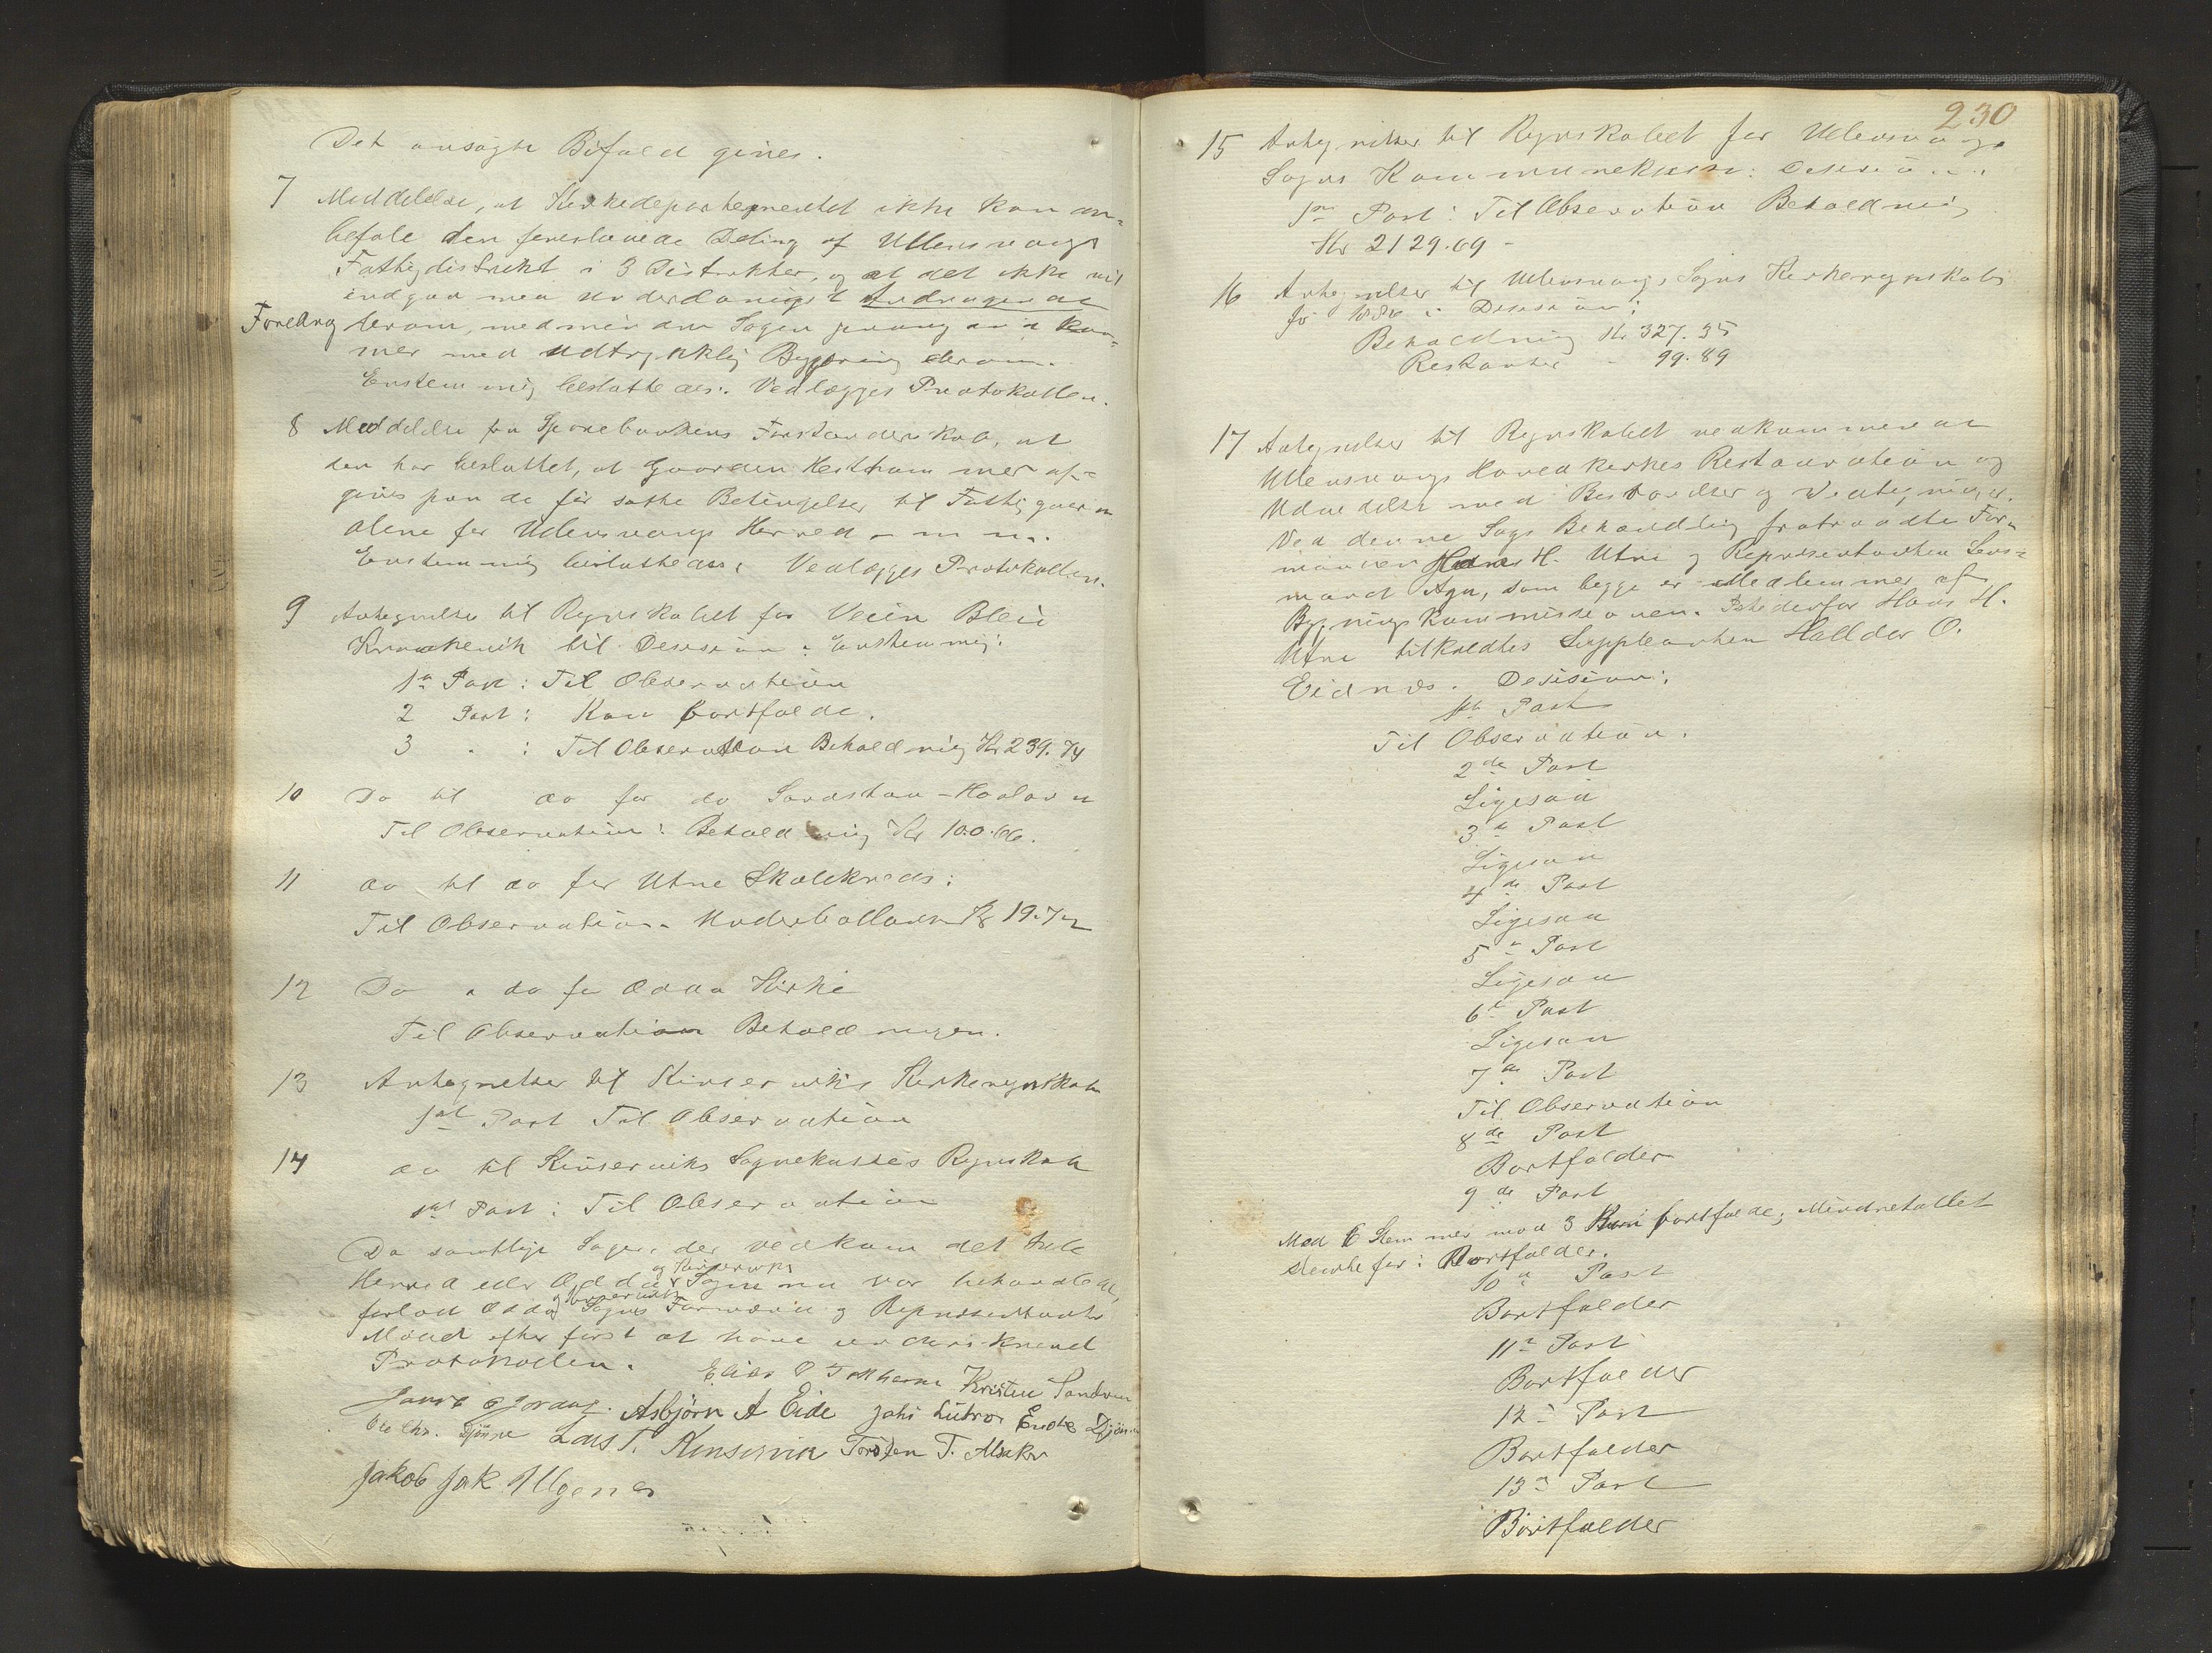 Det ansøgte Bifald gives.
7 Meddelelse, at Kirkedepartementet ikke kan an-
befale den foreslaaede Deling af Ullensvangs
Fattigdistrikt i 3 Distrikter, og at det ikke vil
indgaa med underdanigst Andragende
Foredrag derom, medmindre Sagen paany kom-
mer med udtrykkelig Begjæring derom.
Enstemmig besluttedes: Vedlægges Protokollen.
8 Meddelelse fra Sparebankens Forstanderskab, at
den har besluttet, at Gaarden Hestham mer af-
gives paa de før satte Betingelser til Fattiggaard
alene for Ullensvangs Herred
Enstemmig besluttedes: Vedlægges Protokollen.
9 Antegnelse til Regnskabet for Veien Bleie
Kraakevik til Desision: Enstemmig:
1ste Post: Til Observation
2 Post: Kan bortfalde.
3 " : Til Observation Beholdning Kr 239.74
10 Do til do for do Sandstøa-Haalaren
Til Observation: Beholdning Kr 100.66.
11 do til do for Utne Skolekreds:
Til Observation. Underballance Kr 19.72
12 Do " do for Odda Kirke
Til Observation Beholdningen.
13 Antegnelser til Kinserviks Kirkeregnskab
1ste Post Til Observation
14 do til Kinserviks Sognekasses Regnskab
1ste Post: Til Observation
Da samtlige Sager, der vedkom det hele
og Kinserviks
Herred eller Odda Sogn nu var behandlede,
og Kinserviks
forlod Odda Sogns Formænd og Repræsentanter
Mødet efter først at have underskrevet
Protokollen.
Elias O Tokheim Kristen Sandven
Jacob Gjoraas. Asbjørn A Eide Jahs Lutro Endre Djøn
Ole Chr. Djønne Lars T. Kinservik Torsten T. Alsaker
Jakob Jak Ulgenes
230
15 Antegnelser til Regnskabet for Ullensvangs
Sogns Kommunekasse: Desision:
1ste Post: Til Observation Beholdning
Kr 2129.69 -
16 Antegnelser til Ullensvangs Sogns Kirkeregnskab
for 1886: Desision:
Beholdning Kr 327.35
Restanter - 99.89
17 Antegnelser til Regnskabet vedkommende
Ullensvangs Hovedkirkes Restauration og
Udvidelse med Besvarelser og Vedtegninger.
Ved denne Sags Behandling fratraadte For-
manden Hans H. Utne og Repræsentanten Lens-
mand Aga, som begge er Medlemmer af
Bygningskommissionen. Istedetfor Hans H.
Utne tilkaldtes Suppleanten Halldor O.
Eidnes. Desision:
1ste Post
Til Observation.
2de Post
Ligesaa
3de Post
Ligesaa
4de Post
Ligesaa
5te Post
Ligesaa
6te Post
Ligesaa
7de Post
Til Observation
8de Post
Bortfalder
9de Post
Med 6 Stemmer mod 3 Kan bortfalde; Mindretallet
stemte for: Bortfalder.
10de Post
Bortfalder
11te Post
Bortfalder
12te Post
Bortfalder
13de Post
Bortfalder